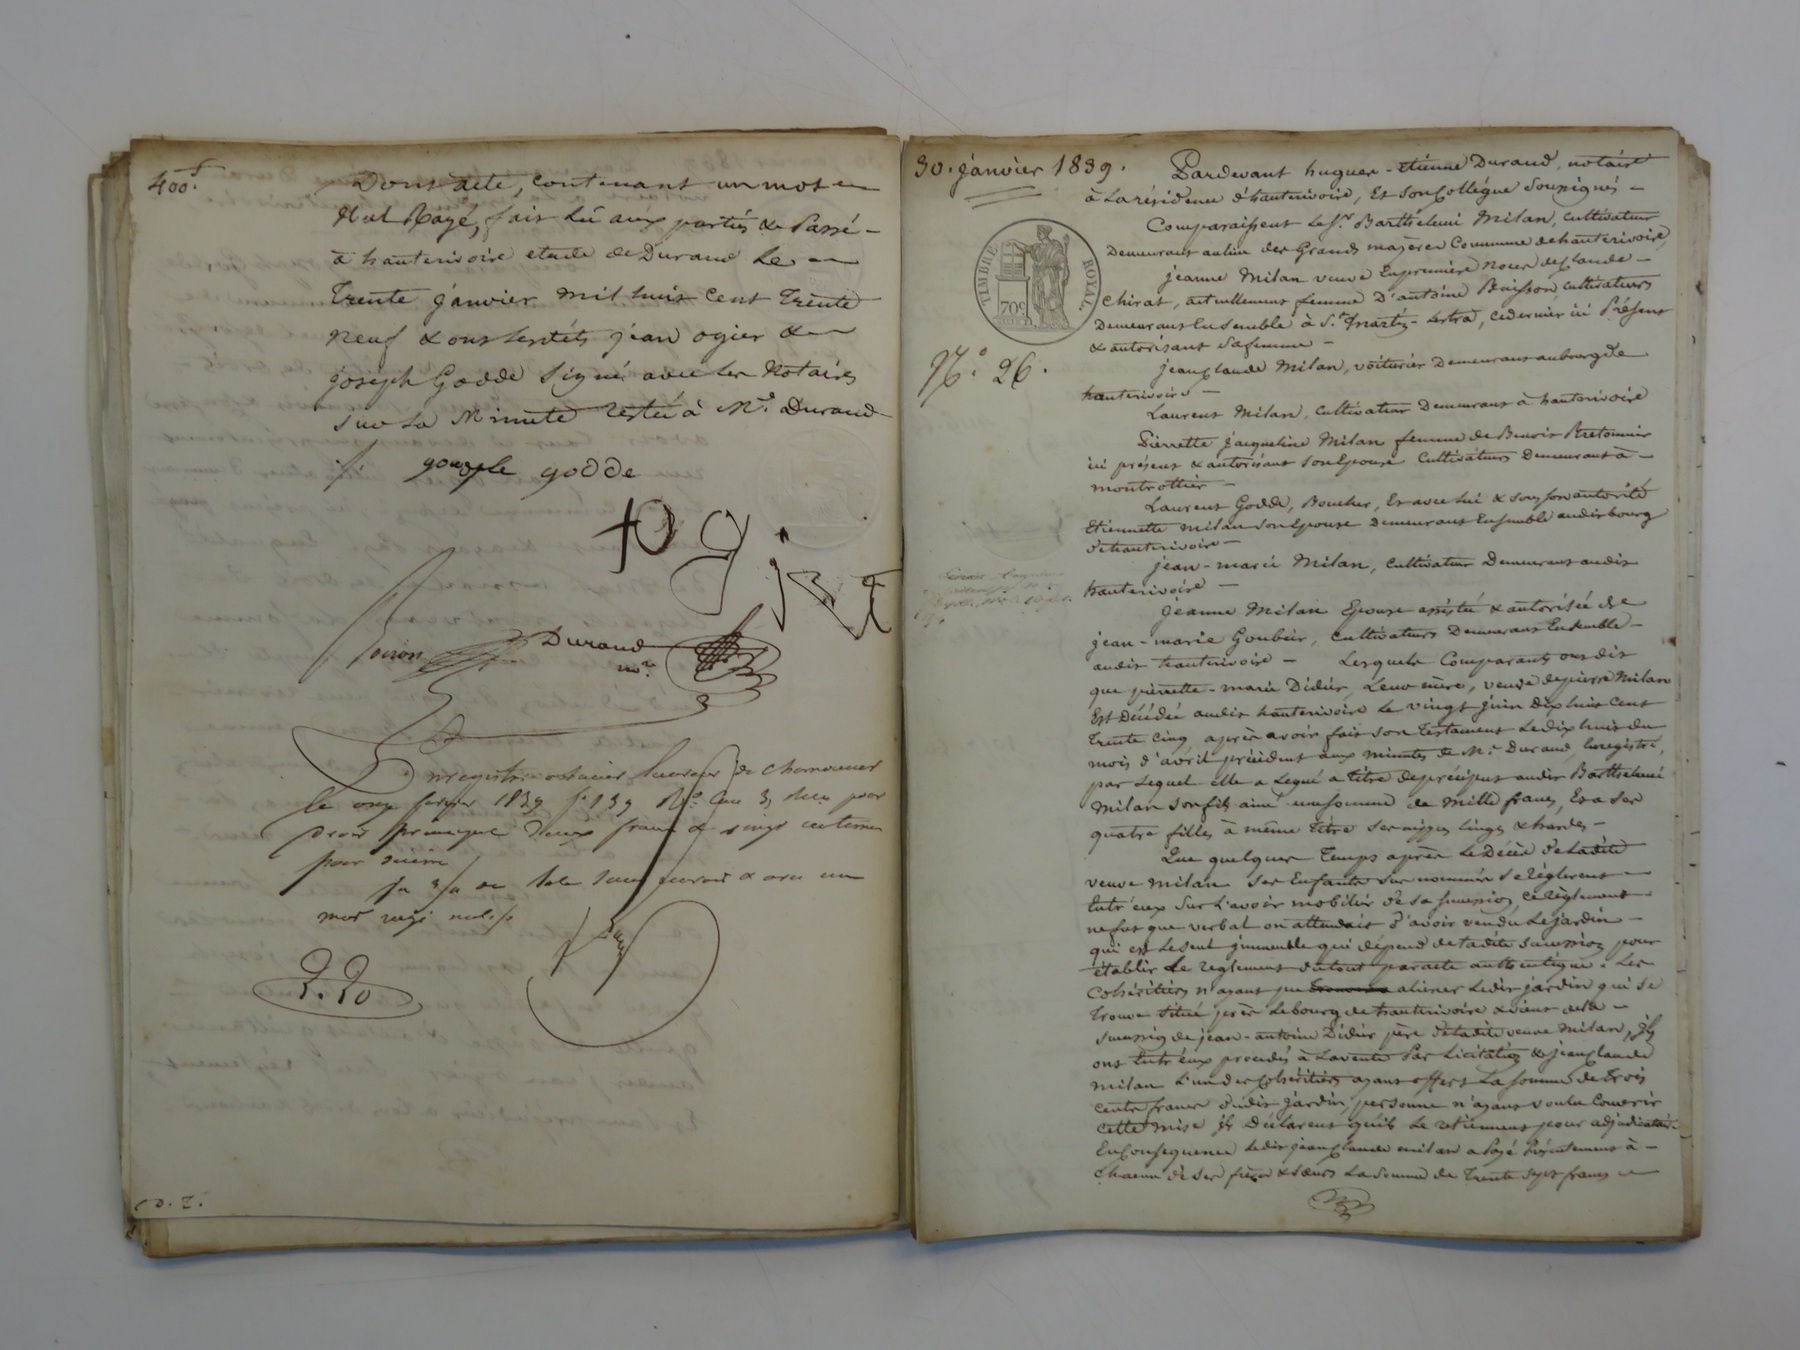 400.f
Dont acte, contenant un mot en
Nul Rayé, fait Lû aux parties & Passé -
à hauterivoire etude de Durand Le -
Trente janvier mil huit cent Trente
neuf & ont les très jean ogier &
joseph Godde signé avec les Notaires
sur la Minute restée à Me. Durand
godde
Durand
nore.
Enregistré à
le onze février 1839 fo 139
deux francs & vingt centimes
pour dixième
mot rayé nul
30. janvier 1839.
TIMBRE ROYAL.
70c
No. 26.
Pardevant hugues-etienne Durand, notaire
à La résidence d'hauterivoire, Et Son Collègue Soussignés -
Comparaissent Le Sr. Barthélemi Milan, cultivateur
Demeurant au lieu des Grands mazères Commune de hauterivoire,
jeanne Milan veuve En première Noces de Claude -
Chirat, actuellement femme D'antoine Buisson cultivateurs
Demeurant Ensemble à St. Martin-Lestra, ce dernier ici Présent
& autorisant Sa femme -
jean Claude Milan, voiturier Demeurant au bourg de
hauterivoire -
Laurent Milan, cultivateur Demeurant à hauterivoire
Pierrette jacqueline Milan femme de Benoit Bretonnier
ici présent & autorisant Son Epouse Cultivateurs Demeurant à -
montrottier -
Laurent Godde, Boucher, Et avec lui & sous son autorité
Etiennette Milan Son Epouse Demeurant Ensemble audit bourg
d'hauterivoire -
jean-marie Milan, cultivateur Demeurant audit
hauterivoire -
jeanne Milan Epouse assistée & autorisée de
jean-marie Goubier, cultivateurs Demeurant Ensemble -
audit hauterivoire - Lesquels Comparants ont dit
que pierrette-marie Didier, Leur mère, veuve de pierre Milan
Est Décédée audit hauterivoire Le vingt juin dix huit Cent
Trente Cinq, après avoir fait son Testament Le dix huit du
mois d'avril précédent aux minutes de Me. Durand, Enregistré,
par Lequel elle a Legué à titre de préciput audit Barthélemi
Milan son fils ainé une somme de Mille francs, Et a Ses
quatre filles à même titre Ses nippes linges & hardes -
Que quelques Temps après Le Décès de Ladite
veuve Milan Ses Enfants Sus nommés Se règlèrent -
Entr'eux Sur L'avoir mobilier de Sa Succession, ce règlement -
ne fut que verbal on attendait d'avoir vendu Le jardin -
qui est Le Seul immeuble qui dépend de Ladite Succession pour
établir Le règlement du tout par acte authentique. Les
Cohéritiers n'ayant pu aliéner Ledit jardin qui se
Trouve Situé près Le bourg de hauterivoire & vient de la -
Succession de jean-antoine Didier père de Ladite veuve Milan, ils
ont Entr'eux procédés à La vente Par Licitation & jean Claude
Milan L'un des Cohéritiers ayant offert La somme de Trois
cents francs dudit jardin, personne n'ayant voulu Couvrir
cette mise ils Déclarent qu'ils Le retiennent pour adjudicataire
En Conséquence Ledit jean Claude milan a Payé Présentement à -
Chacun de ses frères & soeurs La Somme de Trente Sept francs -